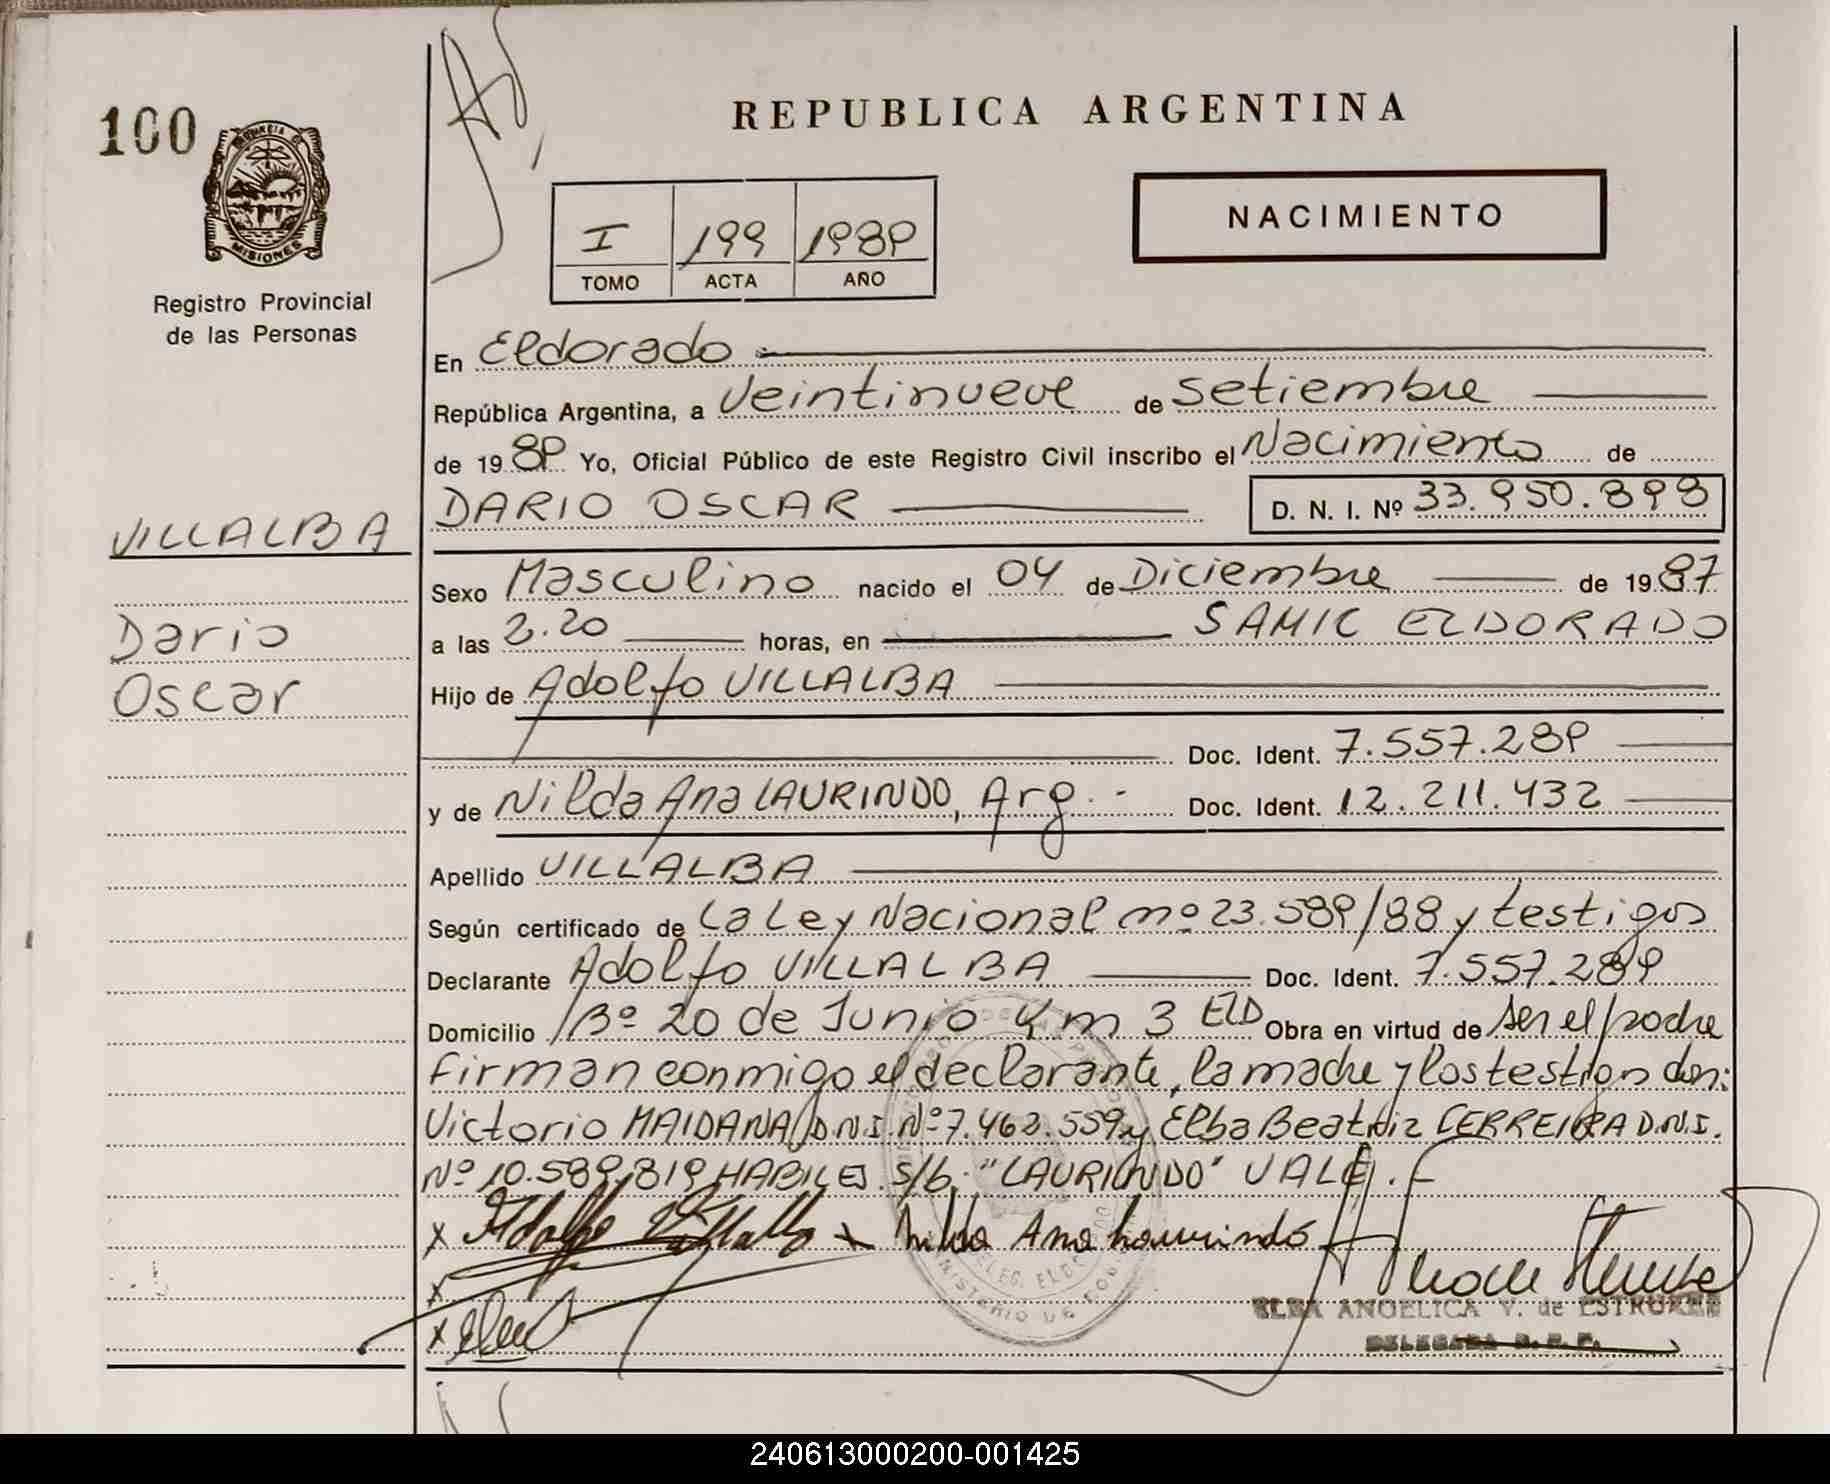 100
REPUBLICA ARGENTINA
MISIONES
Registro Provincial
de las Personas
I 199 1989
TOMO ACTA AÑO
NACIMIENTO
En Eldorado
República Argentina, a Veintinueve de Setiembre
de 1989 Yo, Oficial Público de este Registro Civil inscribo el Nacimiento de
DARIO OSCAR D. N. I. Nº 33.950.898
VILLALBA
Dario
Oscar
Sexo Masculino nacido el 04 de Diciembre de 1987
a las 2.20 horas, en SAMIC ELDORADO
Hijo de Adolfo VILLALBA
Doc. Ident. 7.557.289
y de Nilda Ana LAURINDO, Arg.- Doc. Ident. 12.211.432
Apellido VILLALBA
Según certificado de La Ley Nacional nº 23.589/88 y testigos
Declarante Adolfo VILLALBA Doc. Ident. 7.557.289
Domicilio Bº 20 de Junio Km 3 ELD Obra en virtud de ser el padre
Firman conmigo el declarante, la madre y los testigos don:
Victorio MAIDANA D.N.I. Nº 7.462.559 y Elba Beatriz CERREIRA D.N.I.
Nº 10.589.819 HABILES. s/b. "LAURINDO" VALE.
x Adolfo Villalba x Nilda Ana Laurindo
x
x
ELBA ANGELICA V. de
DELEGADA R. P. P.
240613000200-001425